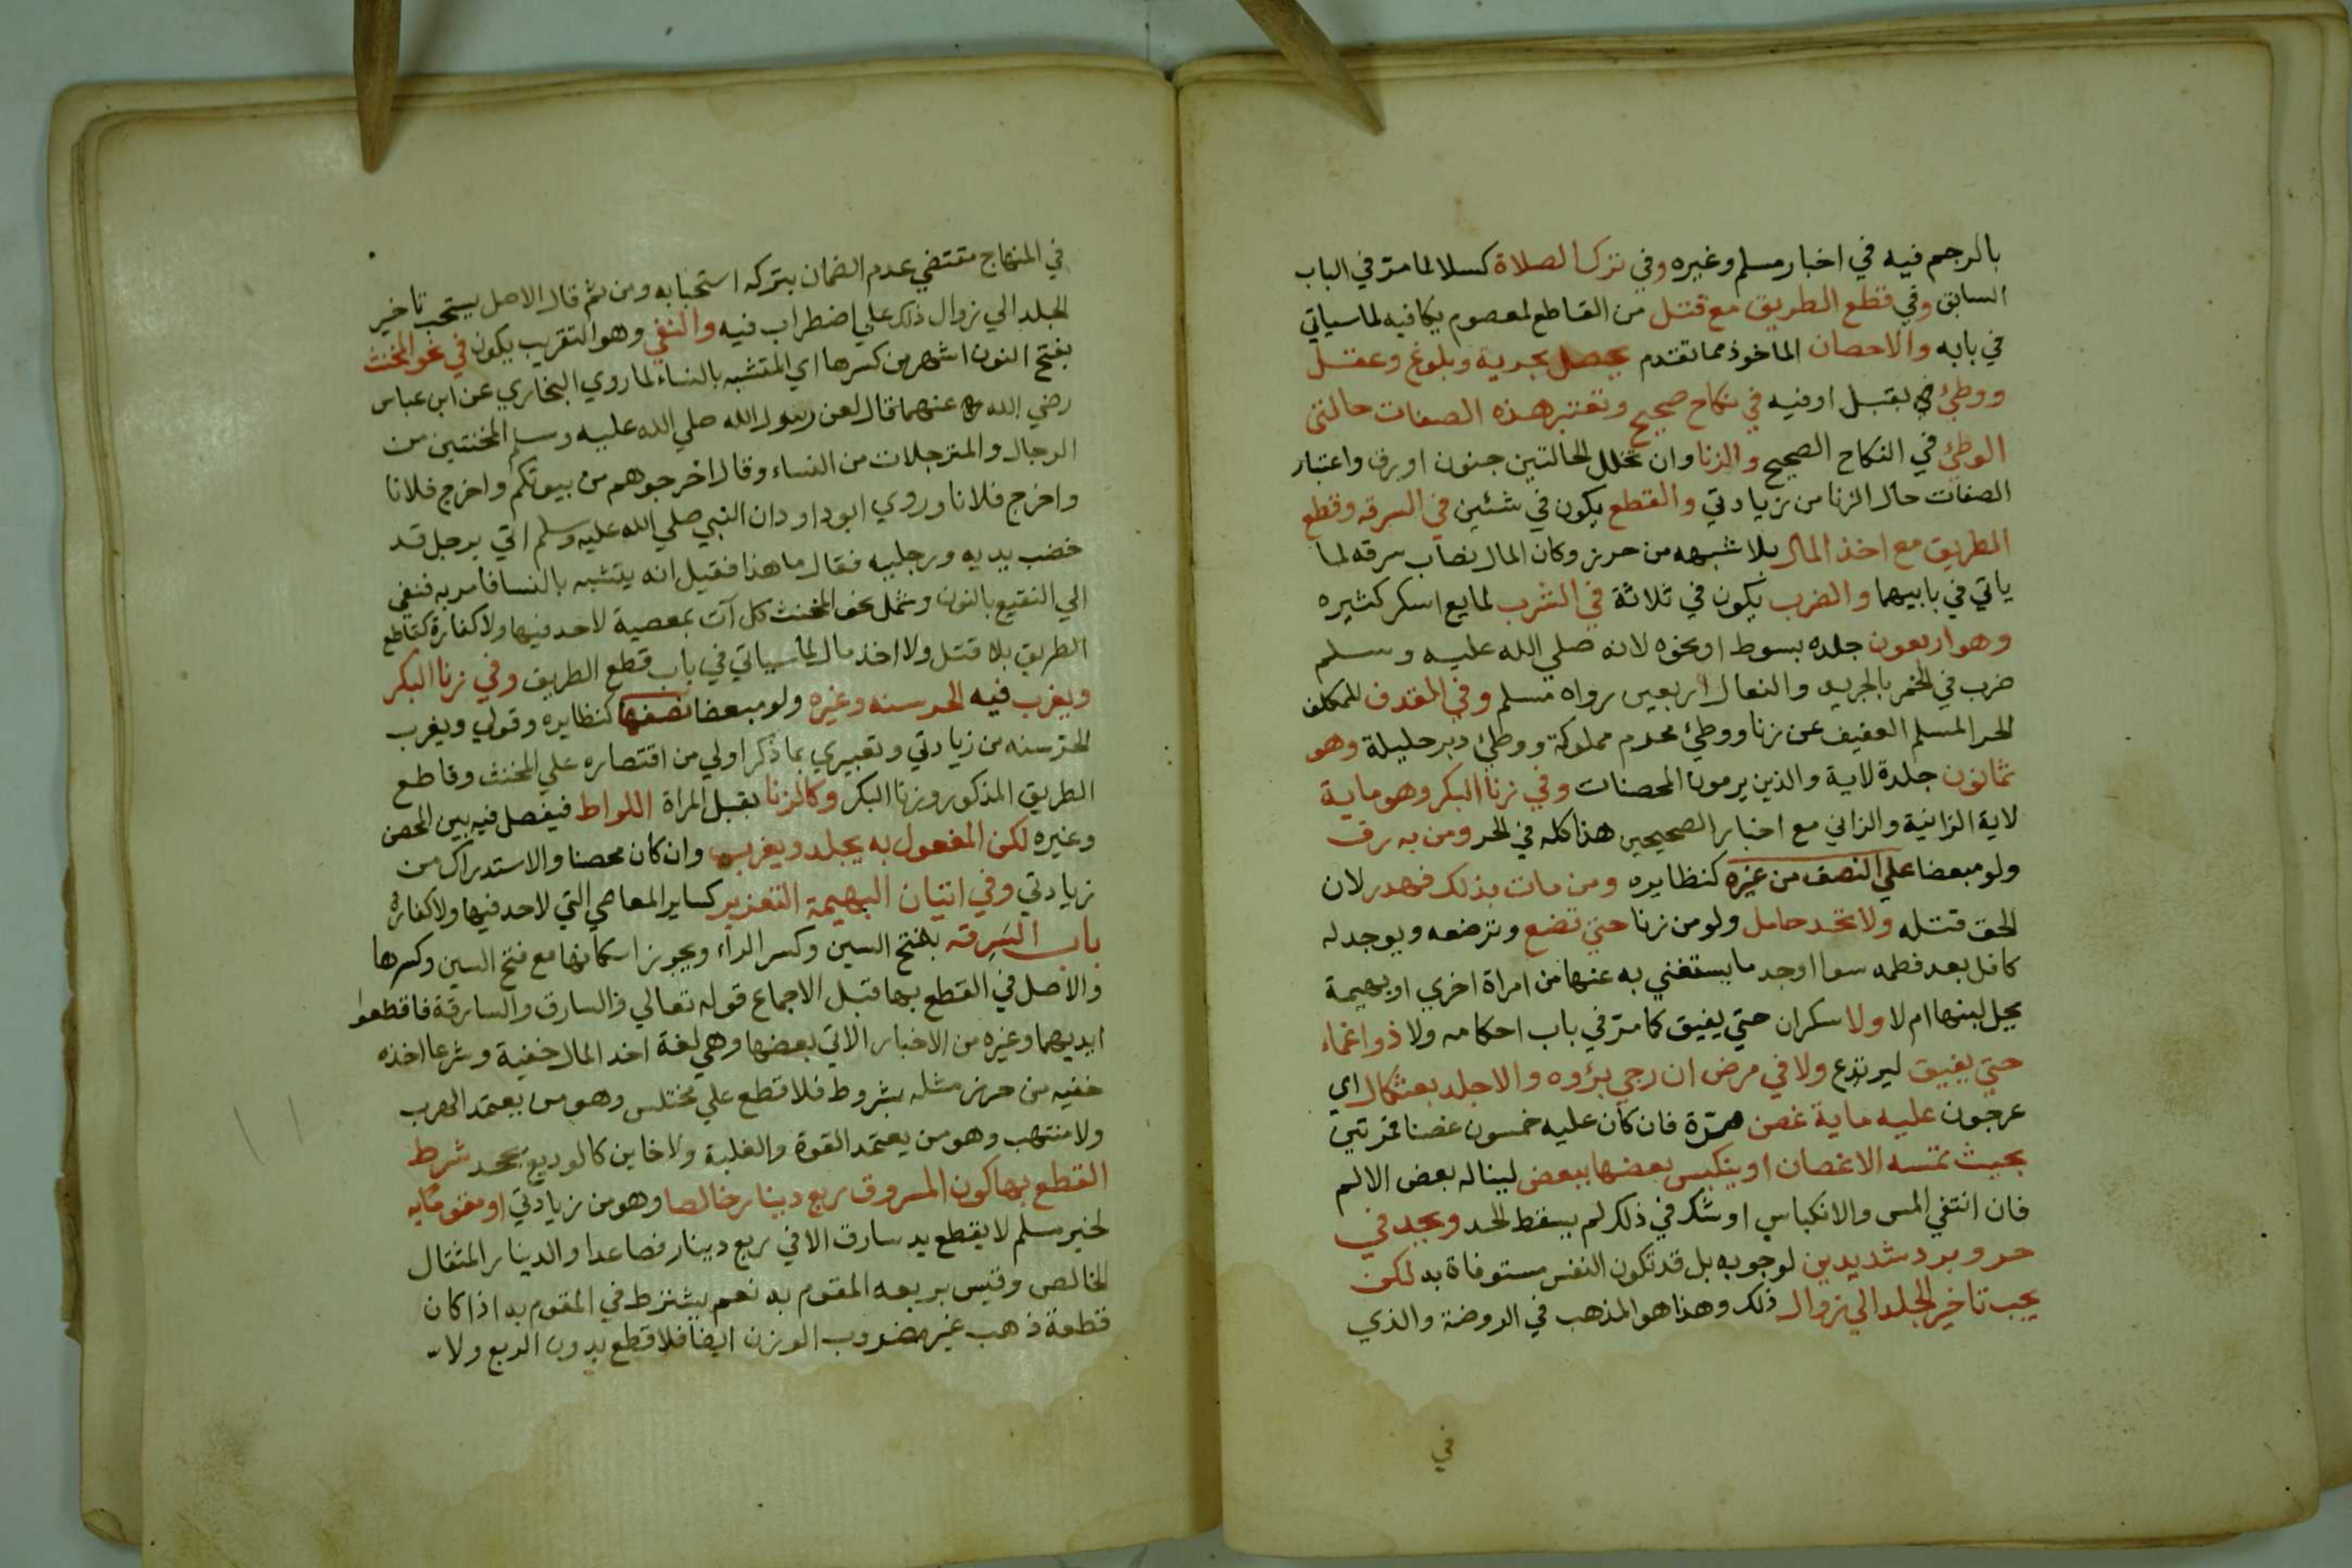 بالرجم فيه في اخبار مسلم وغيره وفي ترك الصلاة كسلا لما مر في الباب
السابق وفي قطع الطريق مع قتل من القاطع لمعصوم يكافيه لما سياتي
في بابه والاحصان الماخوذ مما تقدم يحصل بحرية وبلوغ وعقل
ووطئ بقبل او فيه في نكاح صحيح وتعتبر هذه الصفات حالتى
الوطئ في النكاح الصحيح والزنا وان تخلل الحالتين جنون او رق واعتبار
الصفات حال الزنا من زيادتي والقطع يكون في شئين في السرقه وقطع
الطريق مع اخذ المال بلا شبهه من حرز وكان المال نصاب سرقه لما
ياتي في بابيهما والضرب يكون في ثلاثة في الشرب لمايع اسكر كثيره
وهو اربعون جلده بسوط او نحوه لانه صلي الله عليه وسلم
ضرب في الخمر بالجريد والنعال اربعين رواه مسلم وفي المقذف للمكلف
الحر المسلم العفيف عن زنا ووطئ محرم مملوكة ووطئ دبر حليلة وهو
ثمانون جلدة لاية والذين يرمون المحصنات وفي زنا البكر وهو ماية
لاية الزانية والزاني مع اخبار الصحيحين هذا كله في الحر ومن به رق
ولو مبعضا علي النصف من غيره كنظايره ومن مات بذلك فهدر لان
الحق قتله ولا تحد حامل ولو من زنا حتي تضع وترضعه ويوجد له
كافل بعد فطمه سوا اوجد ما يستغني به عنها من امراة اخري او بهيمة
يحل لبنها ام لا ولا سكران حتي يفيق كما مر في باب احكامه ولا ذو اغماء
حتي يفيق ليرتدع ولا في مرض ان رجي برؤه والا جلد بعثكال اي
عرجون عليه ماية غصن مرة فان كان عليه خمسون غصنا فمرتين
بحيث تمسه الاغصان او ينكبس بعضها ببعض ليناله بعض الالم
فان انتفي المس والانكباس او شك في ذلك لم يسقط الحد ويجلد في
حر وبرد شديدين لوجوبه بل قد تكون النفس مستوفاة به لكن
يجب تاخير الجلد الي زوال ذلك وهذا هو المذهب في الروضة والذي
في
في المنهاج مقتضي عدم الضمان بتركه استحبابه ومن ثم قال الاصل يستحب تاخير
الجلد الي زوال ذلك علي اضطراب فيه والنفي وهو التغريب يكون في نحو المخنث
بفتح النون اشهر من كسرها اي المتشبه بالنساء لما روي البخاري عن ابن عباس
رضي الله عنهما قال لعن رسول الله صلي الله عليه وسلم المخنثين من
الرجال والمترجلات من النساء وقال اخرجوهم من بيوتكم واخرج فلانا
واخرج فلانا وروي ابو داود ان النبي صلي الله عليه وسلم اتي برجل قد
خضب يديه ورجليه فقال ما هذا فقيل انه يتشبه بالنسا فامر به فنفي
الي النقيع بالنون وشمل نحو المخنث كل آت بمعصية لا حد فيها ولا كفارة كقاطع
الطريق بلا قتل ولا اخذ مال لما سياتي في باب قطع الطريق وفي زنا البكر
ويغرب فيه الحر سنه وغيره ولو مبعضا نصفها كنظايره وقولي ويغرب
الحر سنه من زيادتي وتعبيري بما ذكر اولي من اقتصاره علي المخنث وقاطع
الطريق المذكور وزنا البكر وكالزنا بقبل المراة اللواط فيفصل فيه بين المحصن
وغيره لكن المفعول به يجلد ويغرب وان كان محصنا والاستدراك من
زيادتي وفي اتيان البهيمة التعزير كساير المعاصي التي لا حد فيها ولا كفارة
باب السرقه بفتح السين وكسر الراء ويجوز اسكانها مع فتح السين وكسرها
والاصل في القطع بها قبل الاجماع قوله تعالي والسارق والسارقة فاقطعوا
ايديهما وغيره من الاخبار الاتي بعضها وهي لغة اخذ المال خفية وشرعا اخذه
خفيه من حرز مثله بشروط فلا قطع علي مختلس وهو من يعتمد الهرب
ولا منتهب وهو من يعتمد القوة والغلبة ولا خاين كالوديع يجحد شرط
القطع بها كون المسروق ربع دينار خالصا وهو من زيادتي او مقوما به
لخبر مسلم لا يقطع يد سارق الا في ربع دينار فصاعدا والدينار المثقال
الخالص وقيس بربعه المقوم به نعم يشترط في المقوم به اذا كان
قطعة ذهب غير مضروب الوزن ايضا فلا قطع بدون الربع ولا